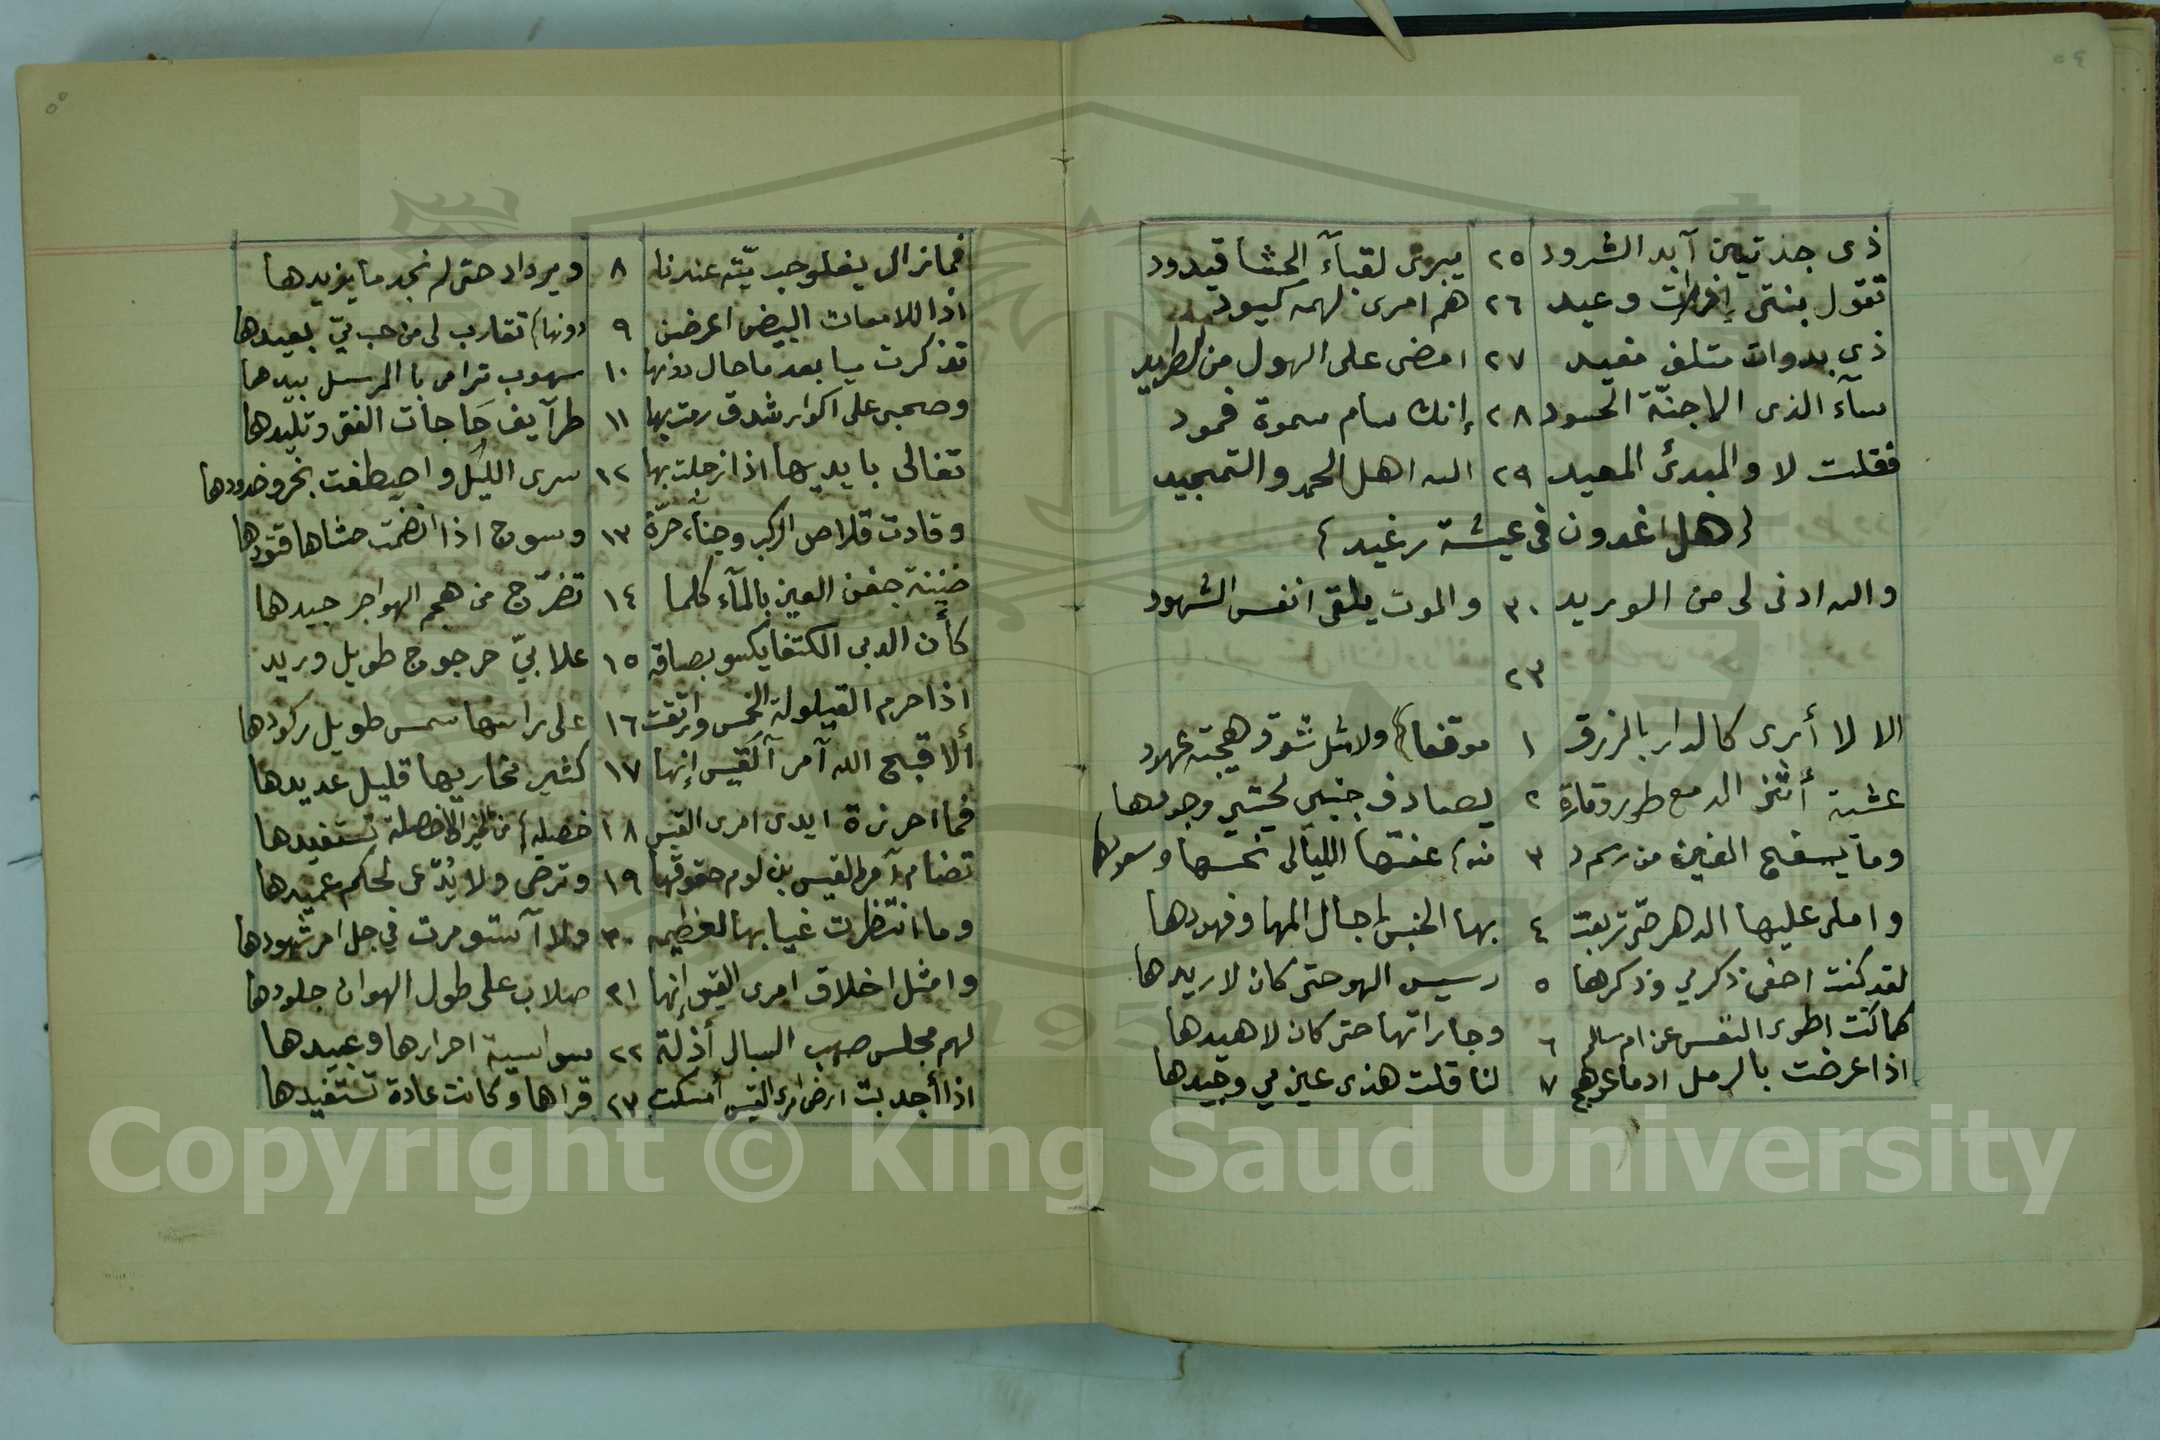 ٥٤
ذى جذتين آبد الشرود ٢٥ يبرى لقبآء الحشا قيدود
تقول بنتى إذ رأت وعيد ٢٦ هم امرى لهمه كيود
ذى بدوات متلف مفيد ٢٧ امضى على الهول من الطريد
سآء الذى الاجنّة الحسود ٢٨ إنك سام سموة فمود
فقلت لا والمبدئ المعيد ٢٩ الله اهل الحمد والتمجيد
(هل اغدون فى عيشة رغيد)
والله ادنى لى من الوريد ٣٠ والموت يلقى انفس الشهود
٢٣
الا لا أرى كالدار بالزرق ١ موقفا) ولا مثل شوق هيجته عهود
عشية أثنى الدمع طورو تارة ٢ يصادف جنبي لحيتي وجودها
وما يسفح العينين من رسم د ٣ منه) عفتها الليالى نحسها وسعودها
واملى عليها الدهر حتى تربعت ٤ بها الخنس اجال المها وفهودها
لقد كنت اخفى ذكر مي وذكرها ٥ رسيس الهو حتى كان لا ريدها
كما كنت اطوى النفس عن ام سالم ٦ وجاراتها حتى كان لا هيدها
اذا عرضت بالرمل ادما عوهج ٧ لنا قلت هذى عين مي وجيدها
٥٥
فما زال يغلو حب ميّته عندنا ٨ ويرداد حتى لم نجد ما يزيدها
اذا اللامعات البيض اعرضن ٩ دونها) تقارب لى من حب ميّ بعيدها
تذكرت ميا بعد ما حال دونها ١٠ سهوب ترامى با المرسل بيدها
وصحبى على اكوار شدق رمت بها ١١ طرآيف حَاجات الفتى وتليدها
تغالى بايديها اذا زجلت بها ١٢ سرى الليل واصطفت بخرو خدودها
وقادت قلاص الركب وجنآء حرّة ١٣ وسوج اذا انضمت حشاها قتودها
ضنينة جفن العين بالمآء كلما ١٤ تضرّج من هجم الهواجر جيدها
كأن الدبى الكتفا يكسو بصاقه ١٥ علابيّ حرجوج طويل وريد
اذا حرم القيلولة الخمس وارتقت ١٦ على راسها شمس طويل ركودها
ألا قبح الله آمر آ لقيس إنها ١٧ كثير مخاريها قليل عديدها
فما احرزة ايدى امرى القيس ١٨ خصيلة) من الخير الا خصلة تستفيدها
تضام امرا القيس بن لوم حقوقها ١٩ وترضى ولا يُدّعى لحكم عميدها
وما انتظرت غيابها لعظيمه ٣٠ ولا آستومرت في جل امر شهودها
وامثل اخلاق امرى القيس إنها ٢١ صلاب على طول الهوان جلودها
لهم مجلس صهب السبال أذلة ٢٢ سواسية احرارها وعبيدها
اذا أجدبت ارض امرئ القيس أمسكت ٢٣ قراها وكانت عادة تستفيدها
Copyright © King Saud University
195